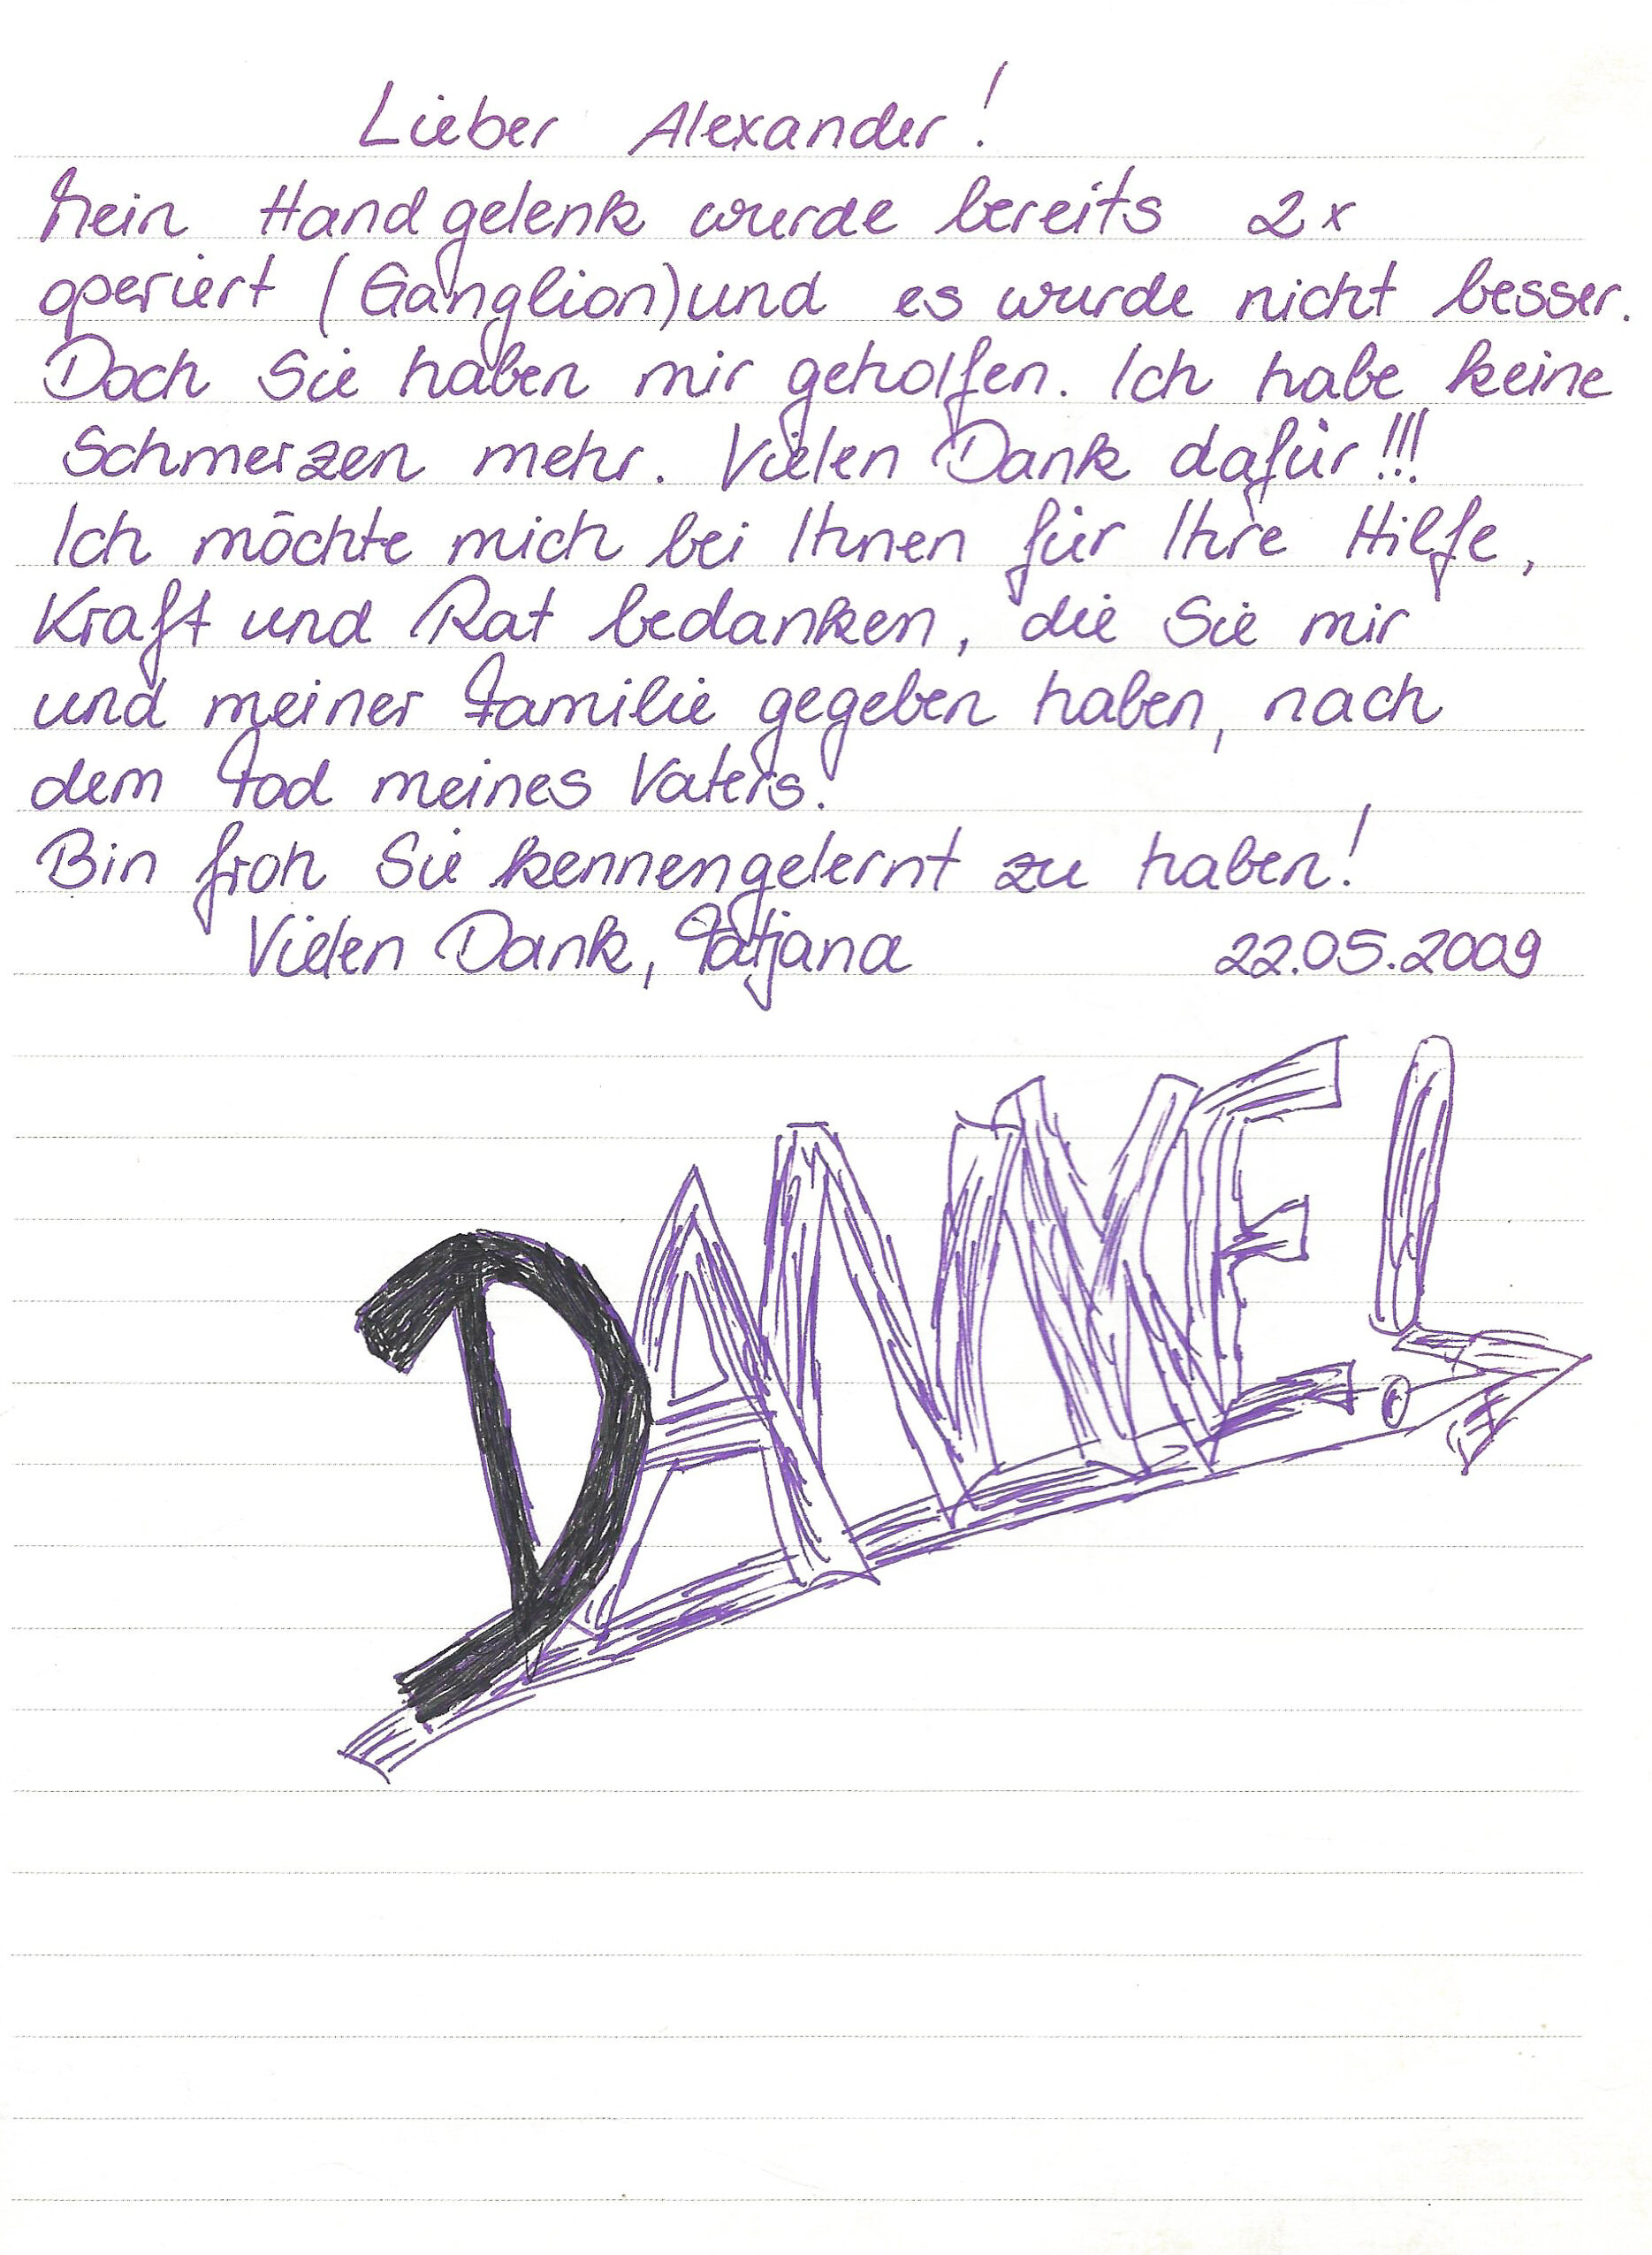 Lieber Alexander!
Mein Handgelenk wurde bereits 2x
operiert (Ganglion) und es wurde nicht besser.
Doch Sie haben mir geholfen. Ich habe keine
Schmerzen mehr. Vielen Dank dafür!!!
Ich möchte mich bei Ihnen für Ihre Hilfe,
Kraft und Rat bedanken, die Sie mir
und meiner Familie gegeben haben, nach
dem Tod meines Vaters.
Bin froh Sie kennengelernt zu haben!
Vielen Dank, Tatjana 22.05.2009
DANKE!